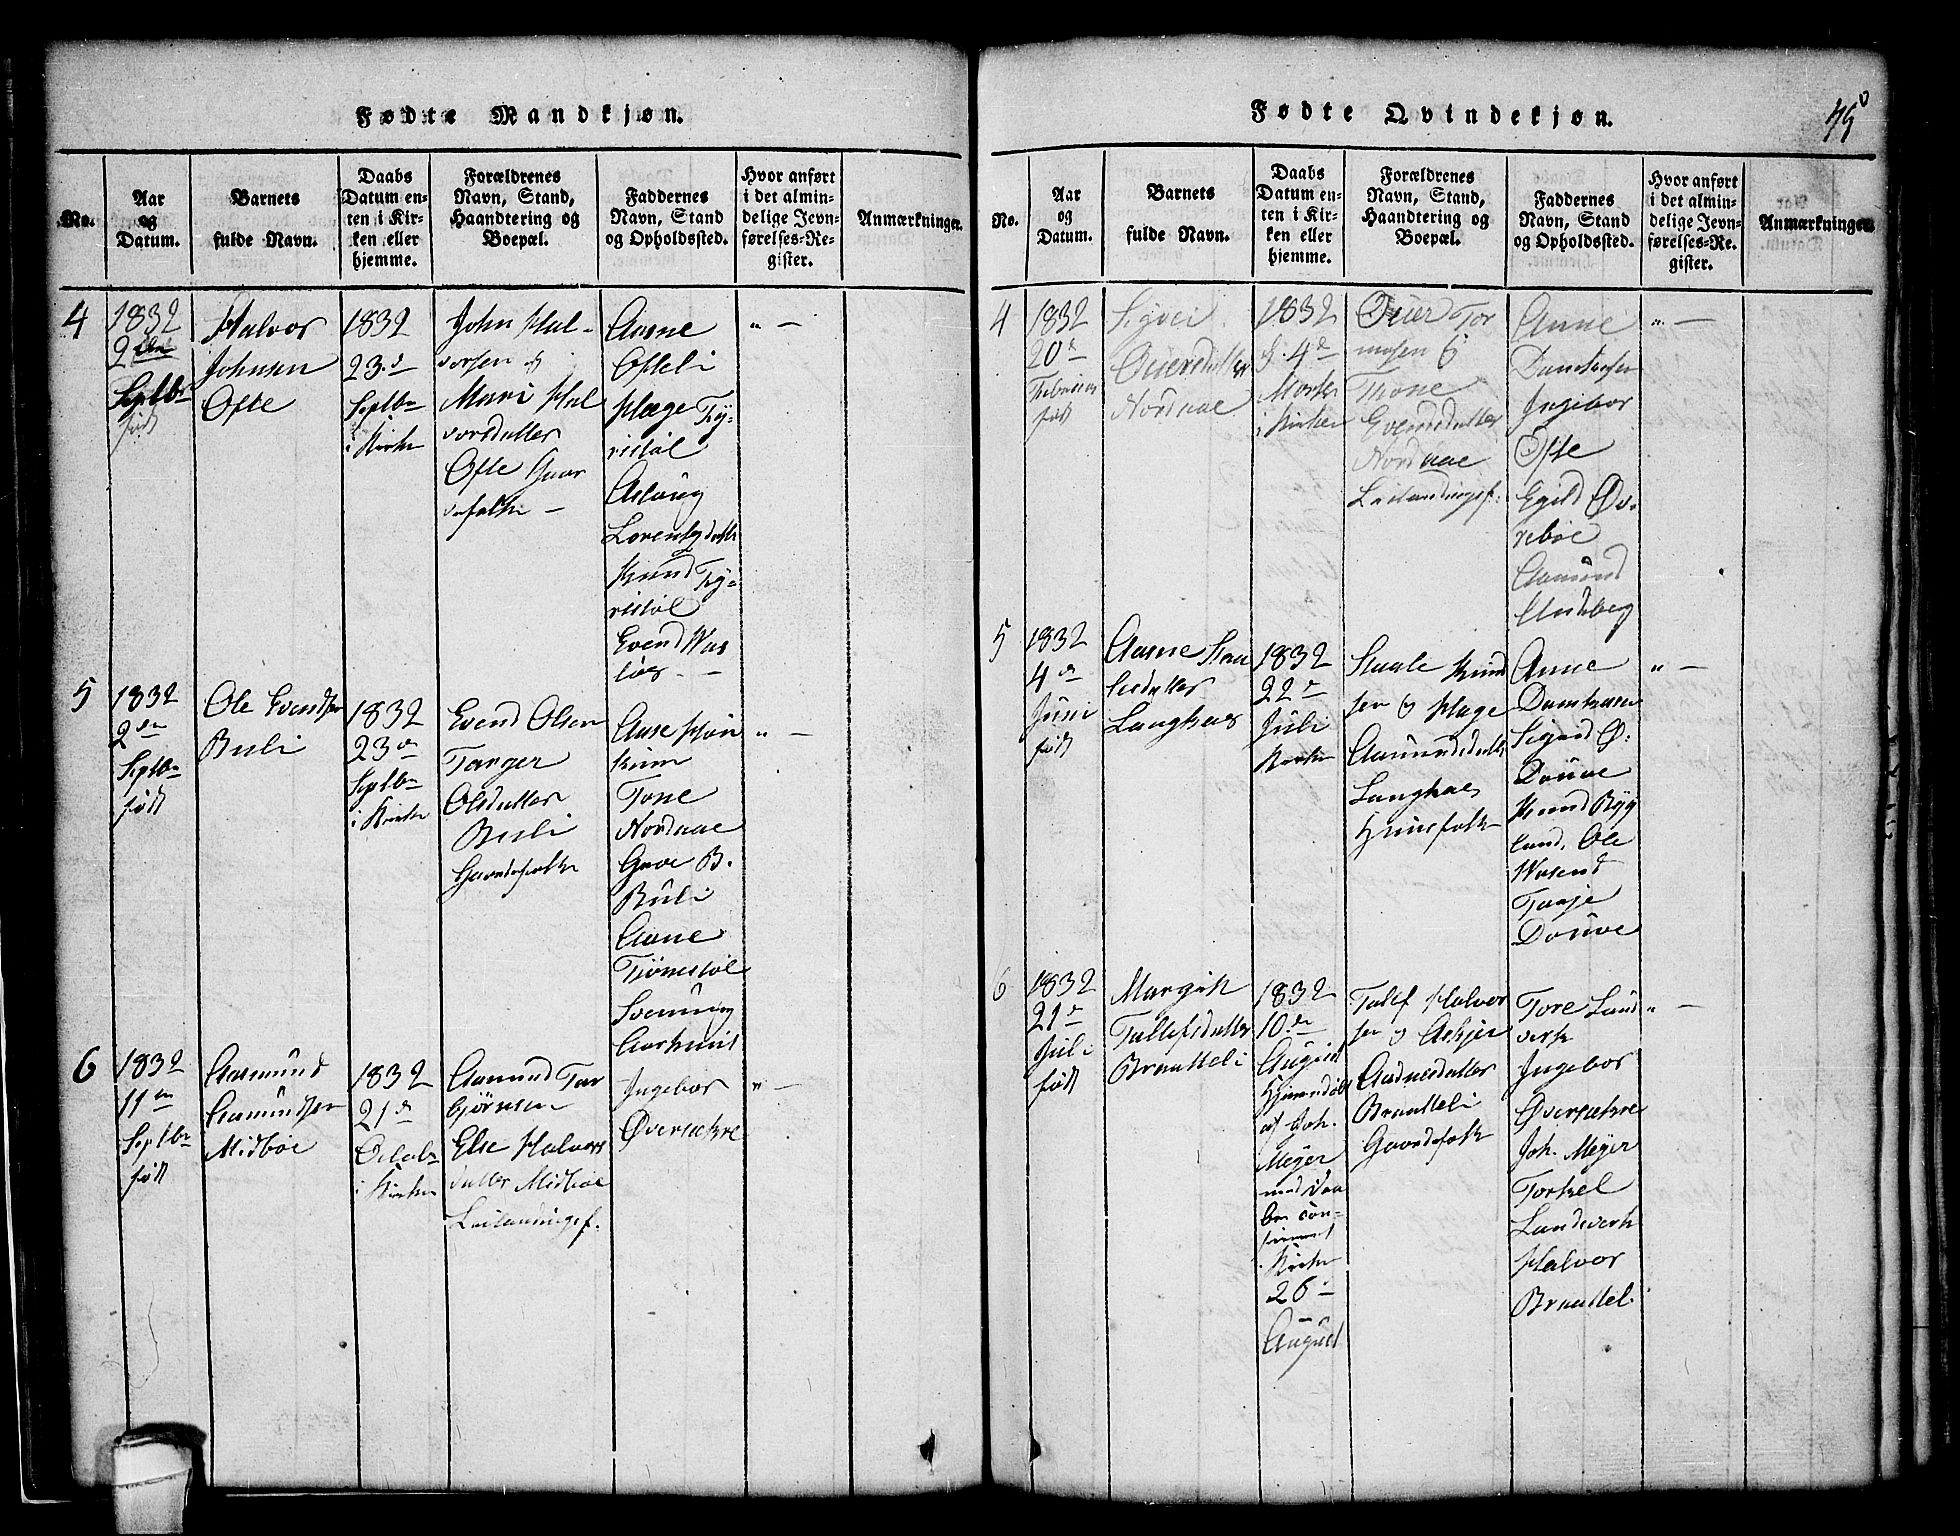 Fødte Mandkjøn.
No.
Aar
og
Datum.
Barnets
fulde Navn.
Daabs
Datum en-
ten i Kir-
ken eller
hjemme.
Forældrenes
Navn, Stand,
Haandtering og
Boepæl.
Faddernes
Navn, Stand
og Opholdssted.
Hvor anført
i det almin-
delige Jevn-
førelses-Re-
gister.
Anmærkninger.
4
1832
2den
Septbr
født
Halvor
Johnsen
Ofte
1832
23.d
Septbr
i Kirken
John Hal-
vorsen og
Mari Hal
vorsdatter
Ofte Gaar
defolk –
Aasne
Ofteli
Hæge Ty-
ristøl
Asloug
Lorentzdatter
Knud Ty-
ristøl
Evend Vas
" –
5
1832
2den
Septbr
født
Ole Evendsen
Buli
1832
23de
Septbr
i Kirken
Evend Olsen
Targer
Olsdatter
Buli
Gaardefolk
Aase
Tone
Nordaae
Gave B.
Buli
Aasne
Tjønestøl
Svenung
" –
6
1832
11te
Septbr
født
Aasmund
Aamundsen
Midbøe
1832
21de
Octobr
i Kirken
Aamund Tor
bjørnsen
Else Halvors
datter Midbøe
Leilændingsf.
Ingebor
Øversækre
" –
Fødte Qvindekjøn.
No.
Aar
og
Datum.
Barnets
fulde Navn.
Daabs
Datum en-
ten i Kir-
ken eller
hjemme.
Forældrenes
Navn, Stand,
Haandtering og
Boepæl.
Faddernes
Navn, Stand
og Opholdssted.
Hvor anført
i det almin-
delige Jevn-
førelses-Re-
gister.
Anmærkninger.
4
1832
20de
Februar
født
Sigvei
Oiersdatter
Nordaae
1832
d. 4de
Marts
i Kirken
Oier Tor
mosen og
Thone
Evensdatter
Nordaae
Leilændingsf.
Anne
Ingebor
Ofte
Egild Øv-
rebøe
Aamund
" –
5
1832
4de
Juni
født
Aasne Staa
lesdatter
Langkaas
1832
22de
Juli
Kirken
Staale Knud
sen og Hæge
Aamundsdatter
Langkaas
Huusfolk
Anne
Sigurd Ø.
Douve
Knud Byg
land, Ole
Vasend
Taaje
Douve
" –
6
1832
21de
Juli
født
Margith
Tallefsdatter
Brautteli
1832
10de
August
hjemmedøbt
af Joh.
Meyer
med Daa
ben con-
firmert
Kirken
26 –
August
Tallef Halvor
sen og Askjer
Aadnesdatter
Brautteli
Gaardefolk
Tore Land
verk
Ingebor
Øversækre
Joh. Meyer
Torkel
Landsverk
Halvor
Brauttel.
" –